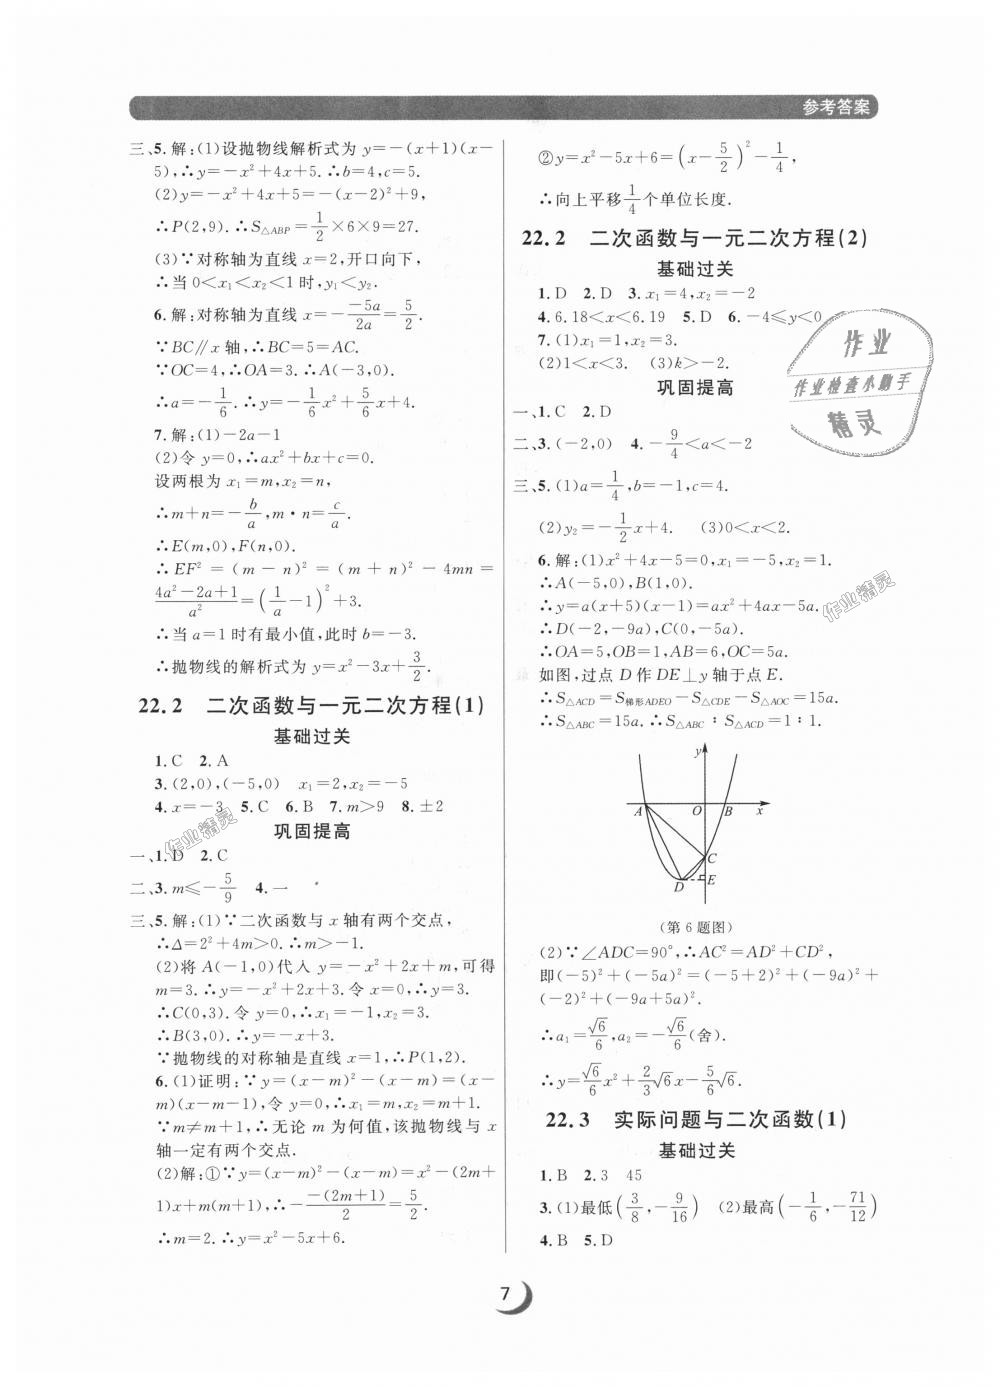 参考答案
三、5. 解:(1)设抛物线解析式为 y=-(x+1)(x-
5),∴y=-x²+4x+5.∴b=4,c=5.
(2)y=-x²+4x+5=-(x-2)²+9,
∴P(2,9).∴S△ABP=1/2×6×9=27.
(3)∵对称轴为直线 x=2,开口向下,
∴当 0<x₁<x₂<1时,y₁<y₂.
6. 解:对称轴为直线 x=-(-5a)/(2a)=5/2.
∵BC∥x 轴,∴BC=5=AC.
∵OC=4,∴OA=3.∴A(-3,0).
∴a=-1/6.∴y=-1/6x²+5/6x+4.
7. 解:(1)-2a-1
(2)令 y=0,∴ax²+bx+c=0.
设两根为 x₁=m,x₂=n,
∴m+n=-b/a,m·n=c/a.
∴E(m,0),F(n,0).
∴EF²=(m-n)²=(m+n)²-4mn=
(4a²-2a+1)/a²=(1/a-1)²+3.
∴当 a=1时有最小值,此时 b=-3.
∴抛物线的解析式为 y=x²-3x+3/2.
22.2 二次函数与一元二次方程(1)
基础过关
1. C 2. A
3. (2,0),(-5,0) x₁=2,x₂=-5
4. x=-3 5. C 6. B 7. m>9 8. ±2
巩固提高
一、1. D 2. C
二、3. m≤-5/9 4. 一
三、5. 解:(1)∵二次函数与 x 轴有两个交点,
∴Δ=2²+4m>0.∴m>-1.
(2)将 A(-1,0)代入 y=-x²+2x+m,可得
m=3.∴y=-x²+2x+3.令 x=0,∴y=3.
∴C(0,3).令 y=0,∴x₁=-1,x₂=3.
∴B(3,0).
∵抛物线的对称轴是直线 x=1,∴P(1,2).
6. (1)证明:∵y=(x-m)²-(x-m)=(x-
m)(x-m-1),∴令y=0,∴x₁=m,x₂=m+1.
∵m≠m+1,∴无论 m 为何值,该抛物线与 x
轴一定有两个交点.
(2)解:①∵y=(x-m)²-(x-m)=x²-(2m+
1)x+m(m+1),∴-(-(2m+1))/2=5/2.
∴m=2.∴y=x²-5x+6.
②y=x²-5x+6=(x-5/2)²-1/4,
∴向上平移1/4个单位长度.
22.2 二次函数与一元二次方程(2)
基础过关
1. D 2. D 3. x₁=4,x₂=-2
4. 6.18<x<6.19 5. D 6. -4≤y<0
7. (1)x₁=1,x₂=3.
(2)1<x<3. (3)k>-2.
巩固提高
一、1. C 2. D
二、3. (-2,0) 4. -9/4<a<-2
三、5. (1)a=1/4,b=-1,c=4.
(2)y₂=-1/2x+4. (3)0<x<2.
6. 解:(1)x²+4x-5=0,x₁=-5,x₂=1.
∴A(-5,0),B(1,0).
∴y=a(x+5)(x-1)=ax²+4ax-5a.
∴D(-2,-9a),C(0,-5a).
∴OA=5,OB=1,AB=6,OC=5a.
如图,过点 D 作 DE⊥y 轴于点 E.
∴S△ACD=S梯形ADEO-S△CDE-S△AOC=15a.
∴S△ABC=15a.∴S△ABC∶S△ACD=1∶1.
y
A O B x
C
D E
(第 6 题图)
(2)∵∠ADC=90°,∴AC²=AD²+CD²,
即(-5)²+(-5a)²=(-5+2)²+(-9a)²+
(-2)²+(-9a+5a)².
∴a₁=√6/6,a₂=-√6/6(舍).
∴y=√6/6x²+2/3√6x-5/6√6.
22.3 实际问题与二次函数(1)
基础过关
1. B 2. 3 45
3. (1)最低(3/8,-9/16) (2)最高(-1/6,-71/12)
4. B 5. D
7
作业
作业检查小助手
精灵
作业精灵
作业精灵